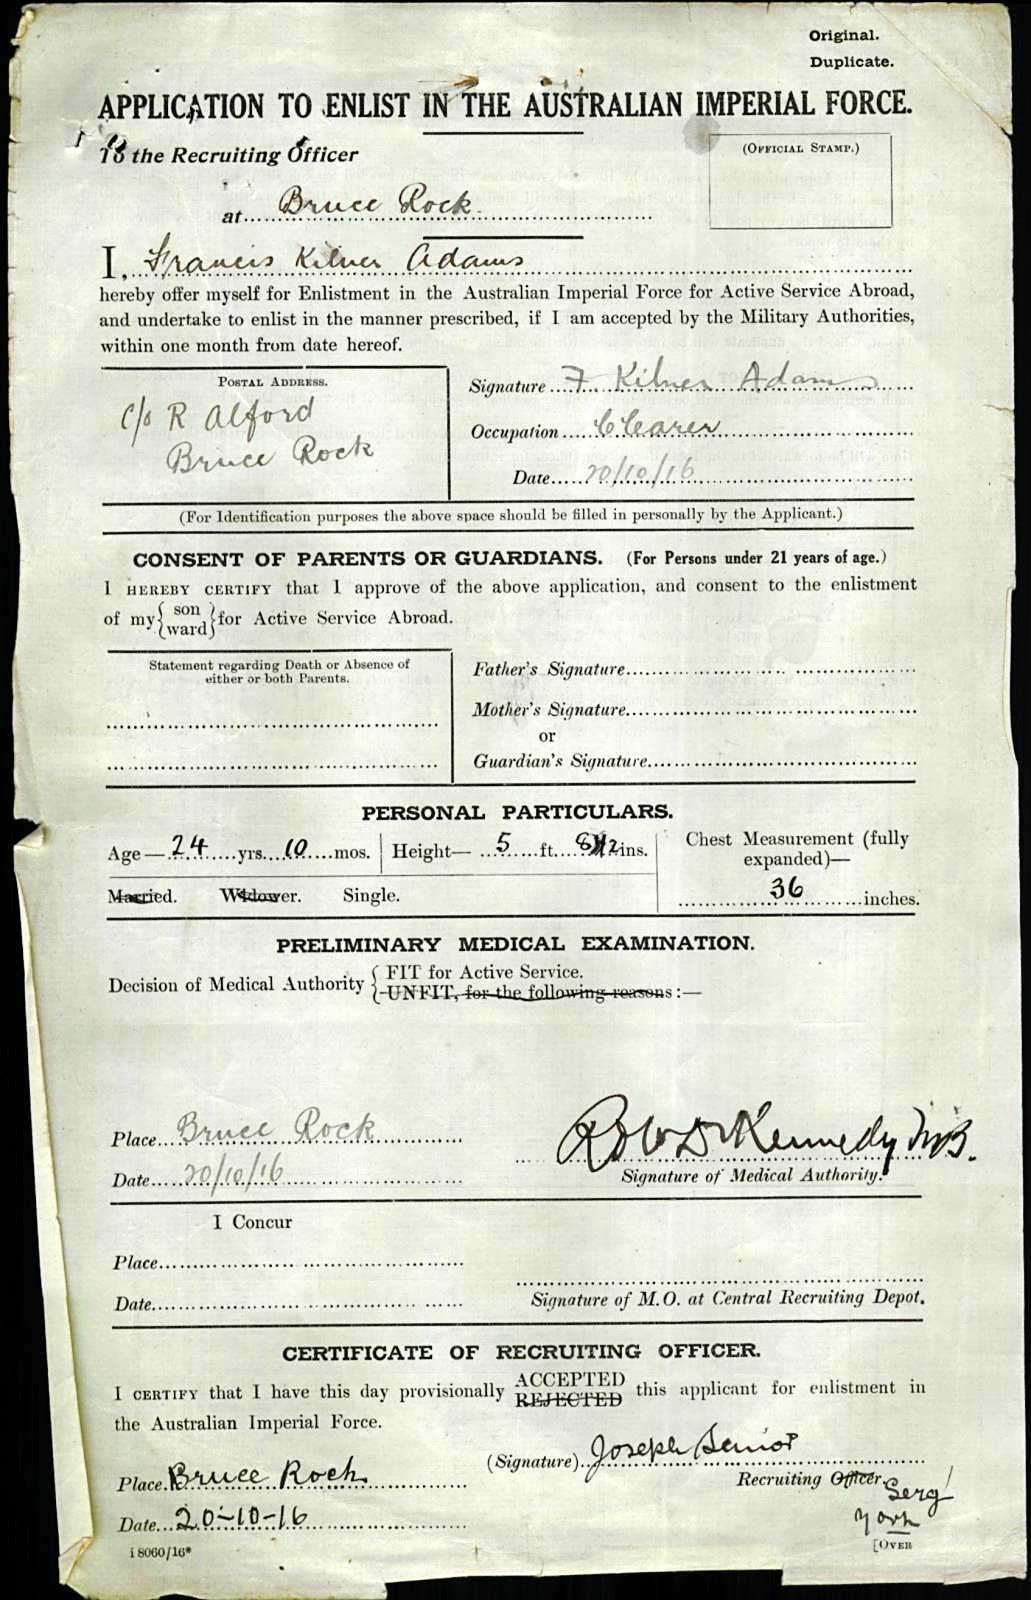 Original.
Duplicate.
APPLICATION TO ENLIST IN THE AUSTRALIAN IMPERIAL FORCE.
To the Recruiting Officer
(OFFICIAL STAMP.)
at Bruce Rock
I, Francis Kilner Adams
hereby offer myself for Enlistment in the Australian Imperial Force for Active Service Abroad,
and undertake to enlist in the manner prescribed, if I am accepted by the Military Authorities,
within one month from date hereof.
POSTAL ADDRESS.
C/o R Alford
Bruce Rock
Signature F Kilner Adams
Occupation Clearer
Date 20/10/16
(For Identification purposes the above space should be filled in personally by the Applicant.)
CONSENT OF PARENTS OR GUARDIANS. (For Persons under 21 years of age.)
I HEREBY CERTIFY that I approve of the above application, and consent to the enlistment
of my { son ward } for Active Service Abroad.
Statement regarding Death or Absence of
either or both Parents.
Father's Signature
Mother's Signature
or
Guardian's Signature
PERSONAL PARTICULARS.
Age— 24 yrs. 10 mos. Height— 5 ft. 8 1/2 ins.
Chest Measurement (fully
expanded)—
36 inches.
Married. Widower. Single.
PRELIMINARY MEDICAL EXAMINATION.
Decision of Medical Authority { FIT for Active Service.
UNFIT, for the following reasons:—
Place Bruce Rock
Date 20/10/16
Kennedy MB.
Signature of Medical Authority.
I Concur
Place
Date
Signature of M.O. at Central Recruiting Depot.
CERTIFICATE OF RECRUITING OFFICER.
I CERTIFY that I have this day provisionally ACCEPTED REJECTED this applicant for enlistment in
the Australian Imperial Force.
(Signature) Joseph Senior
Recruiting Officer.
Serg
York
Place Bruce Rock
Date 20-10-16
i 8060/16*
[OVER